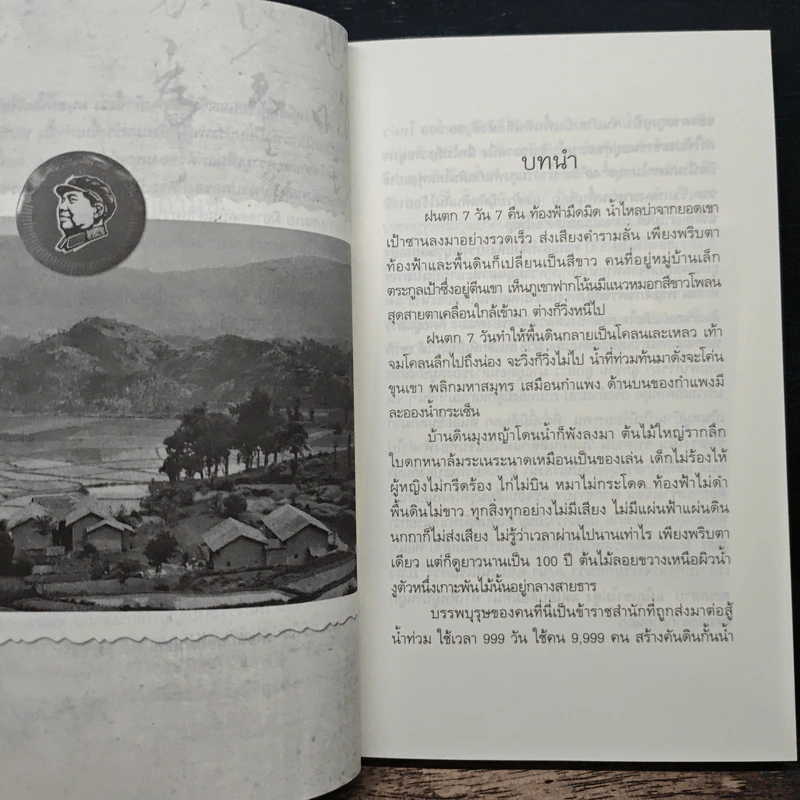 บทนำ
ฝนตก 7 วัน 7 คืน ท้องฟ้ามืดมิด น้ำไหลบ่าจากยอดเขา
เป้าซานลงมาอย่างรวดเร็ว ส่งเสียงคำรามลั่น เพียงพริบตา
ท้องฟ้าและพื้นดินก็เปลี่ยนเป็นสีขาว คนที่อยู่หมู่บ้านเล็ก
ตระกูลเป้าซึ่งอยู่ตีนเขา เห็นภูเขาฟากโน้นมีแนวหมอกสีขาวโพลน
สุดสายตาเคลื่อนใกล้เข้ามา ต่างก็วิ่งหนีไป
ฝนตก 7 วันทำให้พื้นดินกลายเป็นโคลนเละเหลว เท้า
จมโคลนลึกไปถึงน่อง จะวิ่งก็วิ่งไม่ไป น้ำที่ท่วมท้นมาดั่งจะโค่น
ขุนเขา พลิกมหาสมุทร เสมือนกำแพง ด้านบนของกำแพงมี
ละอองน้ำกระเซ็น
บ้านดินมุงหญ้าโดนน้ำก็พังลงมา ต้นไม้ใหญ่รากลึก
ใบดกหนาล้มระเนระนาดเหมือนเป็นของเล่น เด็กไม่ร้องไห้
ผู้หญิงไม่กรีดร้อง ไก่ไม่บิน หมาไม่กระโดด ท้องฟ้าไม่ดำ
พื้นดินไม่ขาว ทุกสิ่งทุกอย่างไม่มีเสียง ไม่มีแผ่นฟ้าแผ่นดิน
นกกาก็ไม่ส่งเสียง ไม่รู้ว่าเวลาผ่านไปนานเท่าไร เพียงพริบตา
เดียว แต่ก็ดูยาวนานเป็น 100 ปี ต้นไม้ลอยขวางเหนือผิวน้ำ
งูตัวหนึ่งเกาะพันไม้นั้นอยู่กลางสายธาร
บรรพบุรุษของคนที่นี่เป็นข้าราชสำนักที่ถูกส่งมาต่อสู้
น้ำท่วม ใช้เวลา 999 วัน ใช้คน 9,999 คน สร้างคันดินกั้นน้ำ